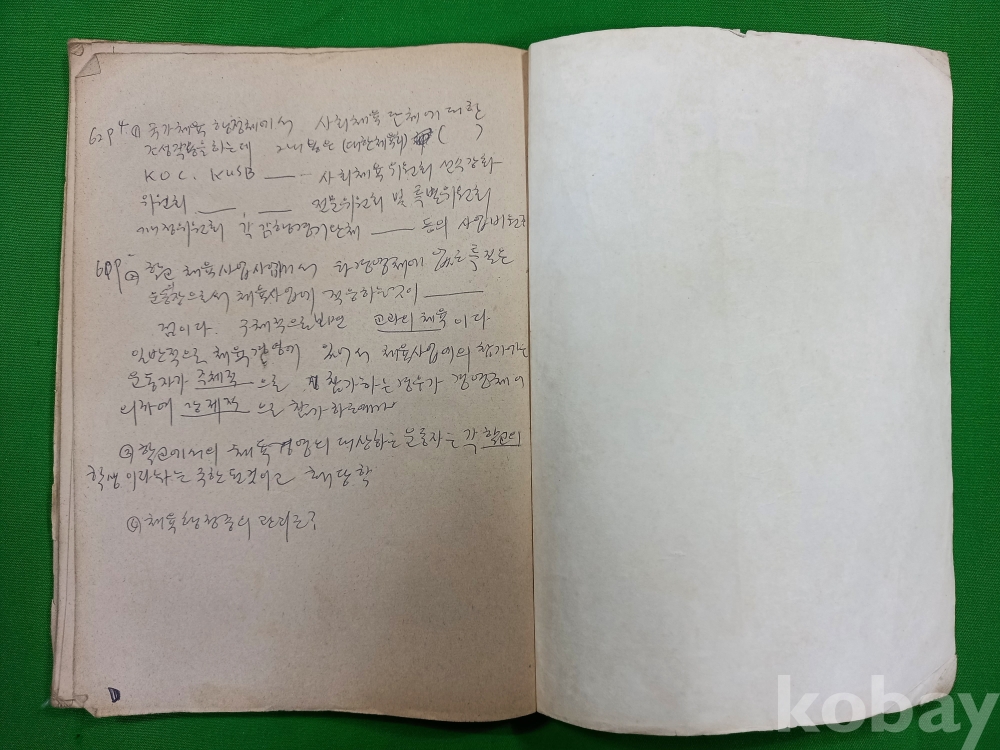 62p 4 ① 국가체육 행정체에서 사회체육 단체에 대한
조성작용을 하는데 그 내용은 (대한체육회) ( )
KOC, KUSB —— 사회체육위원회 선수강화
위원회 ——, —— 전문위원회 및 특별위원회
위원회 각 경기단체 —— 등의 사업비 원
② 학교 체육사업에서 타 경영체에 없는 특질은
운동장으로서 체육사업에 적응하는 것이 ——
점이다. 구체적으로 보면 교과의 체육이다
일반적으로 체육경영에 있어서 체육사업에의 참가는
운동자가 주체적으로 참가하는 경우가 경영체에
의하여 강제적으로 참가
③ 학교에서의 체육경영의 대상하는 운동자는 각 학교의
학생이라는 국한된 것이고 해당학
④ 체육행정의 관리는?
D
kobay